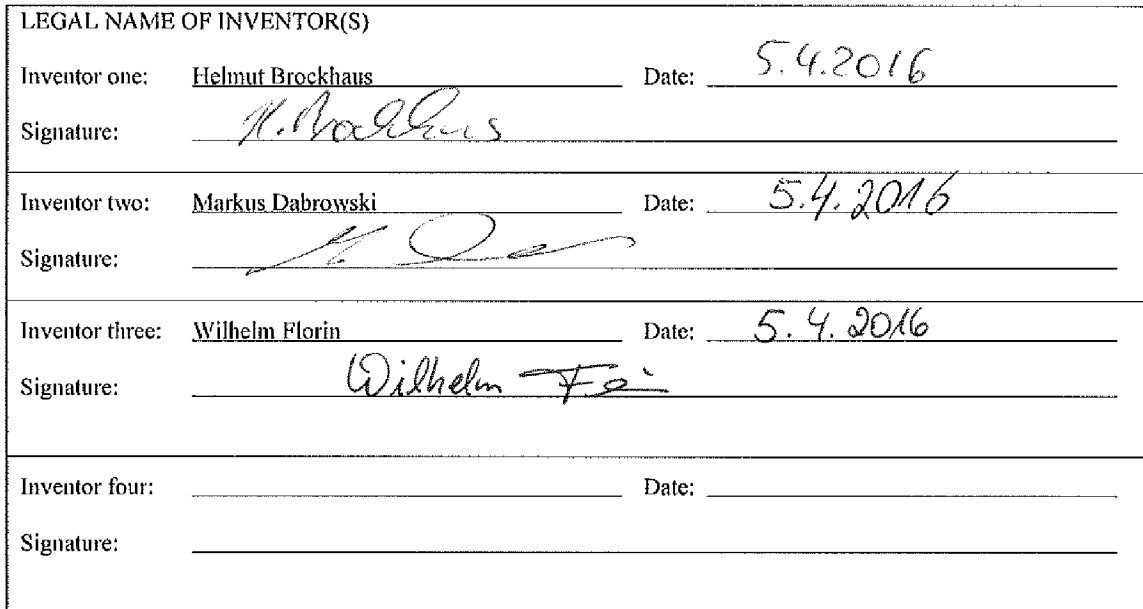 LEGAL NAME OF INVENTOR(S)
Inventor one: Helmut Brockhaus Date: 5.4.2016
Signature: H. Brockhaus
Inventor two: Markus Dabrowski Date: 5.4.2016
Signature:
Inventor three: Wilhelm Florin Date: 5.4.2016
Signature: Wilhelm
Inventor four: Date:
Signature: